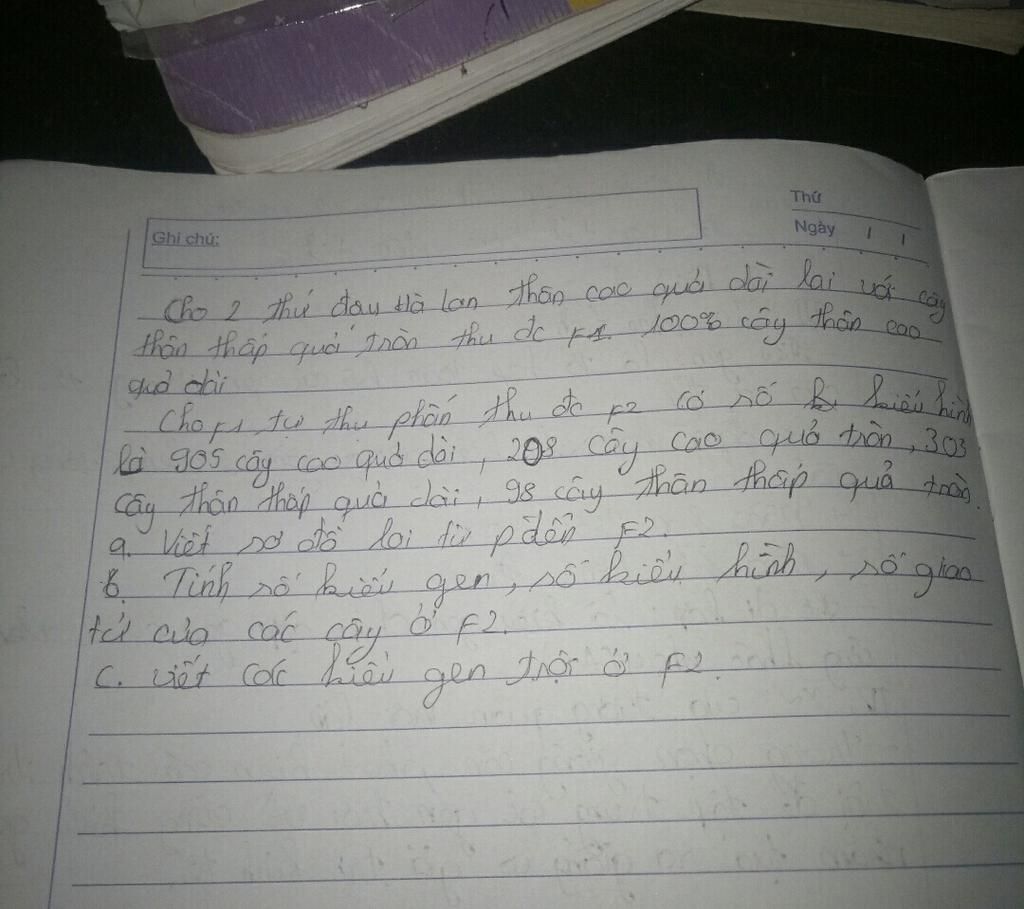 Thứ
Ngày
Ghi chú:
Cho 2 thứ đậu Hà lan thân cao quả dài lai với cây
thân thấp quả tròn thu đc F1 100% cây thân cao
quả dài
Cho F1 tự thụ phấn thu đc F2 có số kiểu hình
là 905 cây cao quả dài, 208 cây cao quả tròn, 303
cây thân thấp quả dài, 98 cây thân thấp quả tròn.
a. Viết sơ đồ lai từ p đến F2.
b. Tính số kiểu gen, số kiểu hình, số giao
tử của các cây ở F2.
c. viết các kiểu gen trội ở F2.